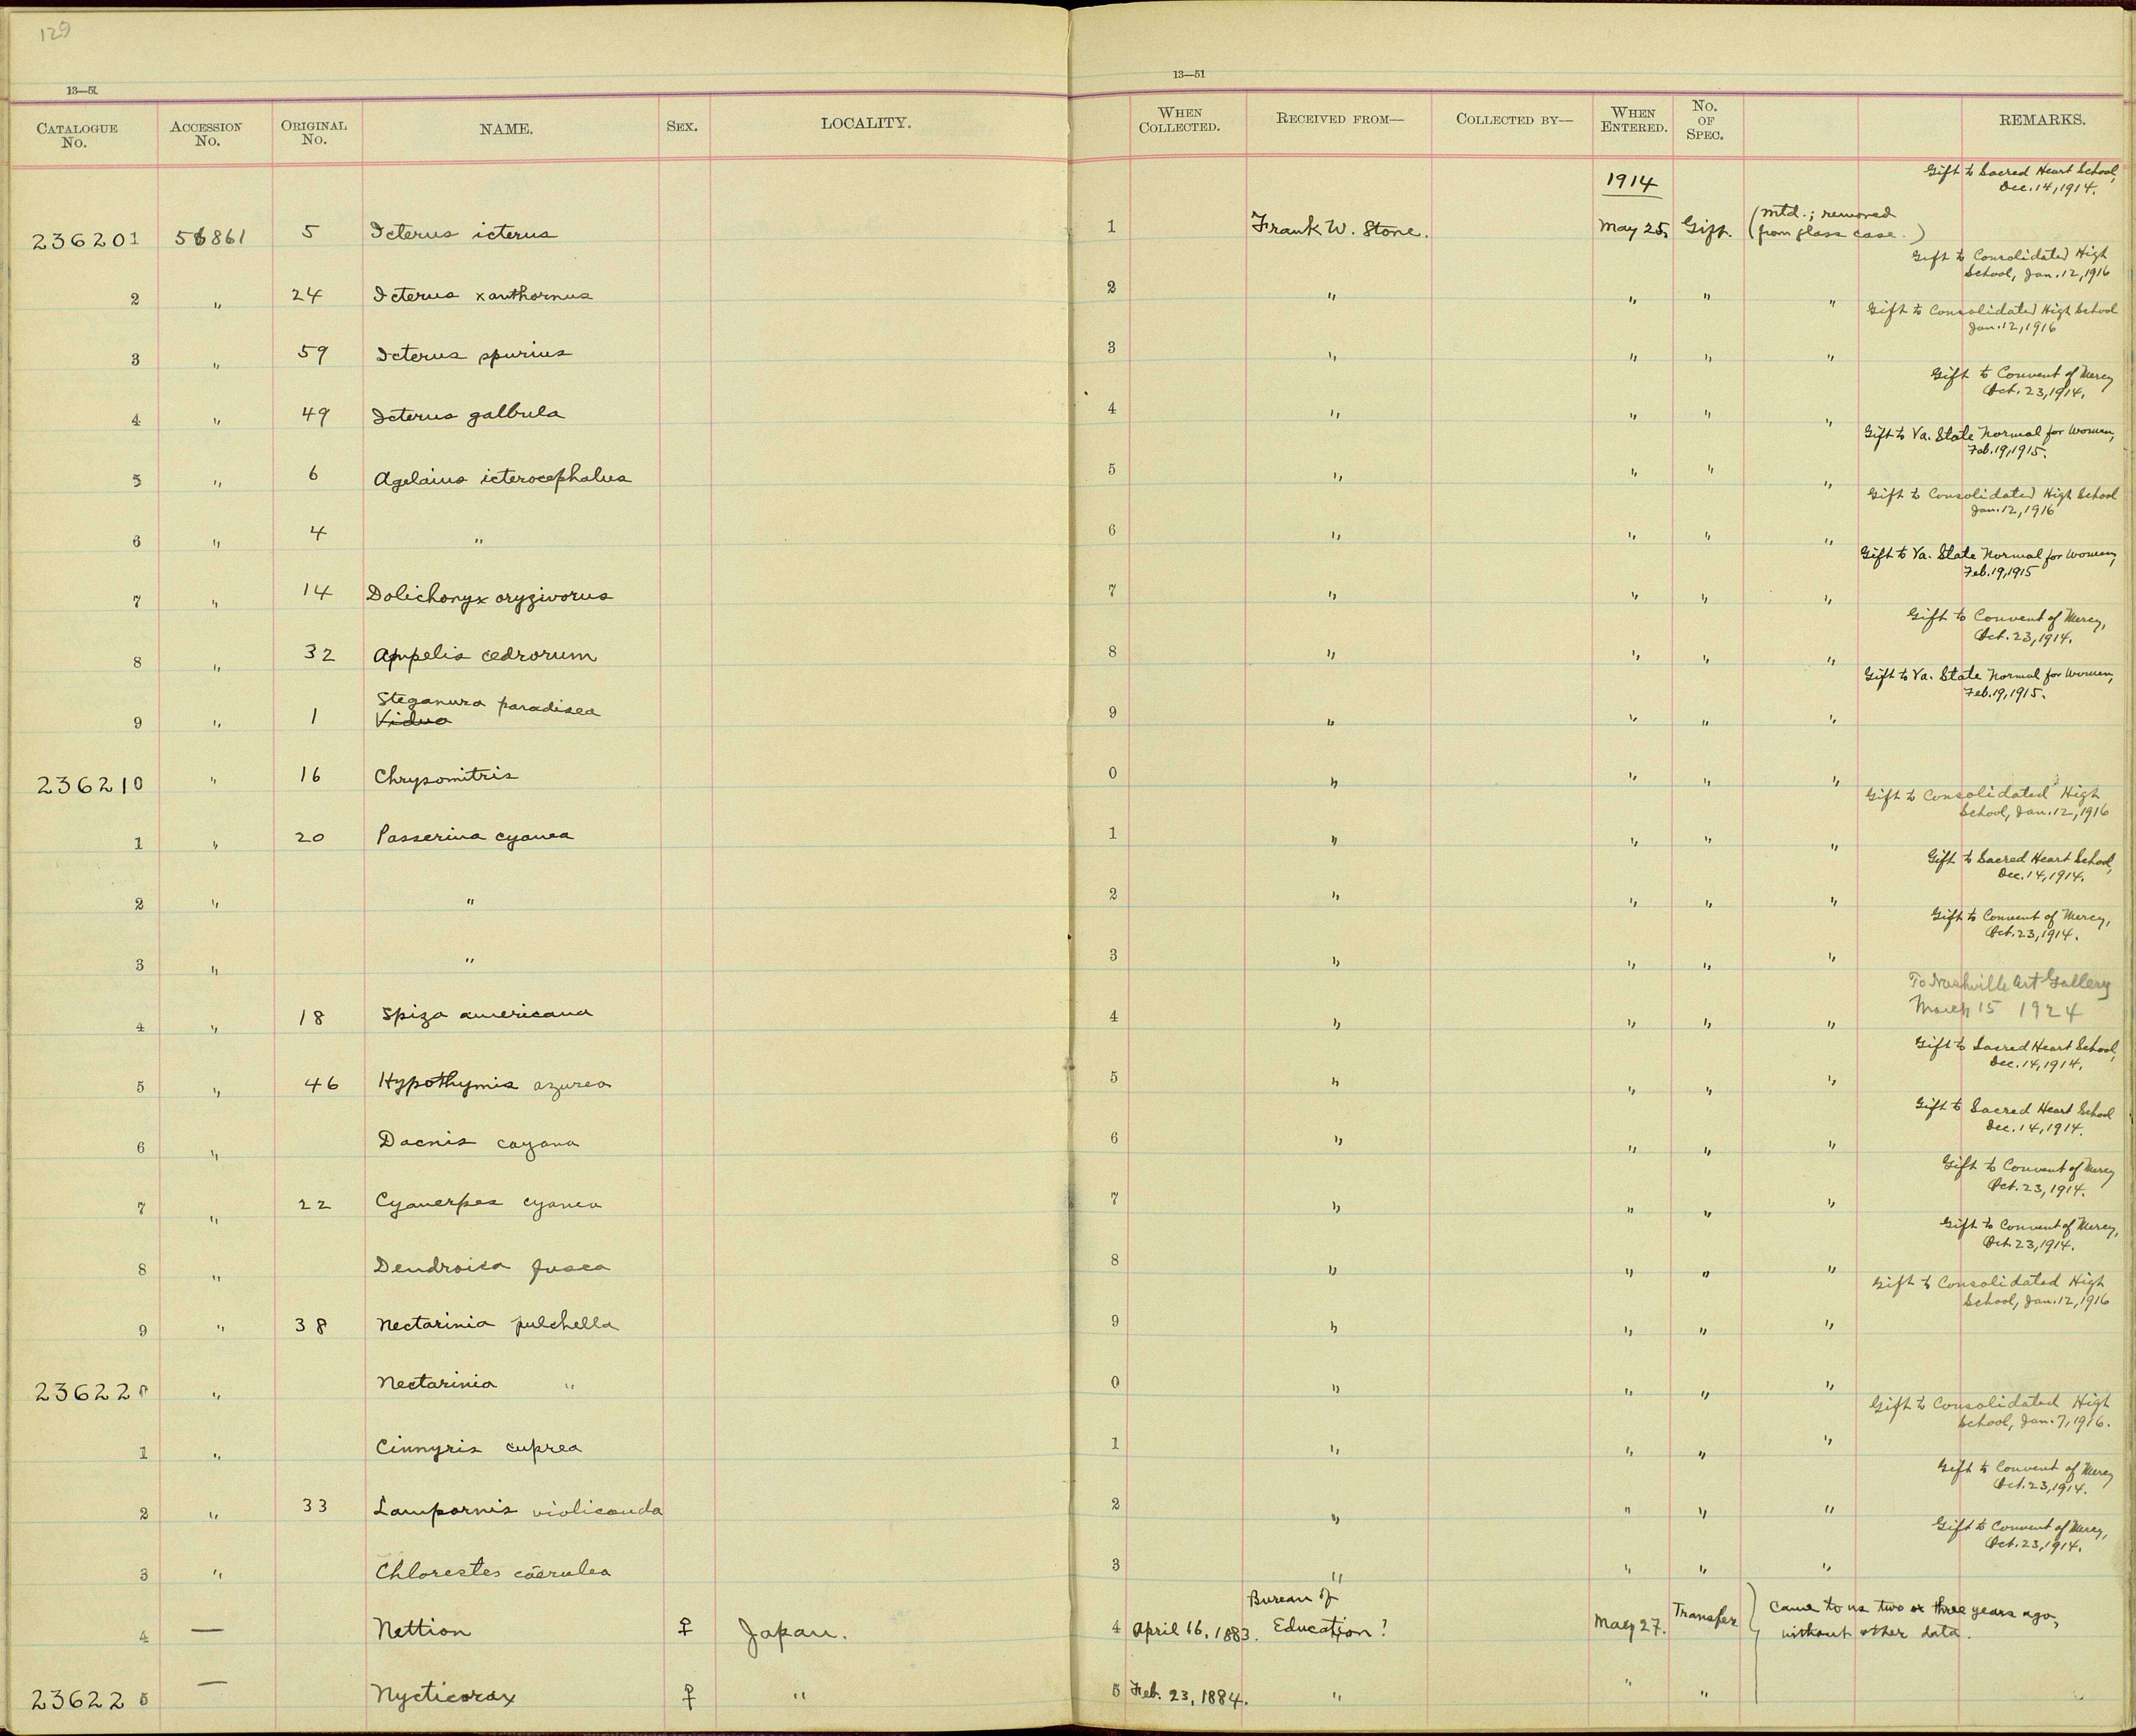 129
13—51
13—51
CATALOGUE No. ACCESSION No. ORIGINAL No. NAME. SEX. LOCALITY. WHEN COLLECTED. RECEIVED FROM— COLLECTED BY— WHEN ENTERED. No. OF SPEC. REMARKS.
1914 Gift to Sacred Heart School, Dec. 14, 1914.
236201 56861 5 Icterus icterus 1 Frank W. Stone. May 25, Gift. (Mtd.; removed from glass case.)
Gift to Consolidated High School, Jan. 12, 1916
2 " 24 Icterus xanthornus 2 " " " "
Gift to Consolidated High School Jan. 12, 1916
3 " 59 Icterus spurius 3 " " " "
Gift to Convent of Mercy Oct. 23, 1914.
4 " 49 Icterus galbula 4 " " " "
Gift to Va. State Normal for Women, Feb. 19, 1915.
5 " 6 Agelaius icterocephalus 5 " " " "
Gift to Consolidated High School Jan. 12, 1916
6 " 4 " 6 " " " "
Gift to Va. State Normal for Women, Feb. 19, 1915
7 " 14 Dolichonyx oryzivorus 7 " " " "
Gift to Convent of Mercy, Oct. 23, 1914.
8 " 32 Ampelis cedrorum 8 " " " "
Gift to Va. State Normal for Women, Feb. 19, 1915.
9 " 1 Steganura paradisea Vidua 9 " " " "
236210 " 16 Chrysomitris 0 " " " "
Gift to Consolidated High School, Jan. 12, 1916
1 " 20 Passerina cyanea 1 " " " "
Gift to Sacred Heart School, Dec. 14, 1914.
2 " " 2 " " " "
Gift to Convent of Mercy, Oct. 23, 1914.
3 " " 3 " " " "
To Nashville Art Gallery March 15 1924
4 " 18 Spiza americana 4 " " " "
Gift to Sacred Heart School, Dec. 14, 1914.
5 " 46 Hypothymis azurea 5 " " " "
Gift to Sacred Heart School Dec. 14, 1914.
6 " Dacnis cayana 6 " " " "
Gift to Convent of Mercy Oct. 23, 1914.
7 " 22 Cyanerpes cyanea 7 " " " "
Gift to Convent of Mercy, Oct. 23, 1914.
8 " Dendroica fusca 8 " " " "
Gift to Consolidated High School, Jan. 12, 1916
9 " 38 Nectarinia pulchella 9 " " " "
236220 " Nectarinia " 0 " " " "
Gift to Consolidated High School, Jan. 7, 1916.
1 " Cinnyris cuprea 1 " " " "
Gift to Convent of Mercy Oct. 23, 1914.
2 " 33 Lampornis violicauda 2 " " " "
Gift to Convent of Mercy, Oct. 23, 1914.
3 " Chlorestes cäerulea 3 " " " "
4 — Nettion ♀ Japan. 4 April 16, 1883. Bureau of Education? May 27. Transfer Came to us two or three years ago, without other data.
236225 — Nycticorax ♀ " 5 Feb. 23, 1884. " " "